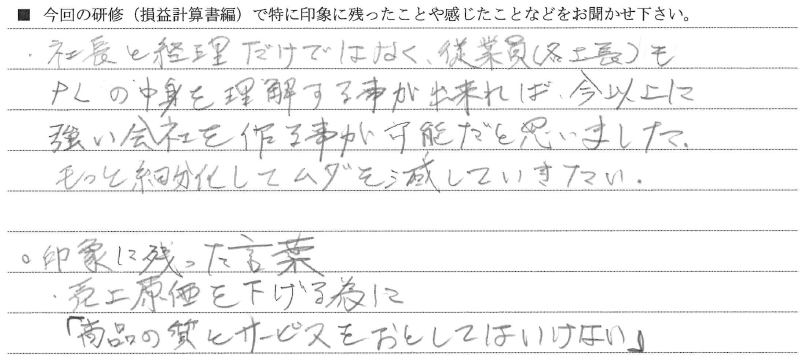 ■ 今回の研修（損益計算書編）で特に印象に残ったことや感じたことなどをお聞かせ下さい。
・社長と経理だけではなく、従業員(各工長)も
PLの中身を理解する事が出来れば、今以上に
強い会社を作る事が可能だと思いました。
もっと細分化してムダを減していきたい。
○印象に残った言葉
・売上原価を下げる為に
「商品の質とサービスをおとしてはいけない」